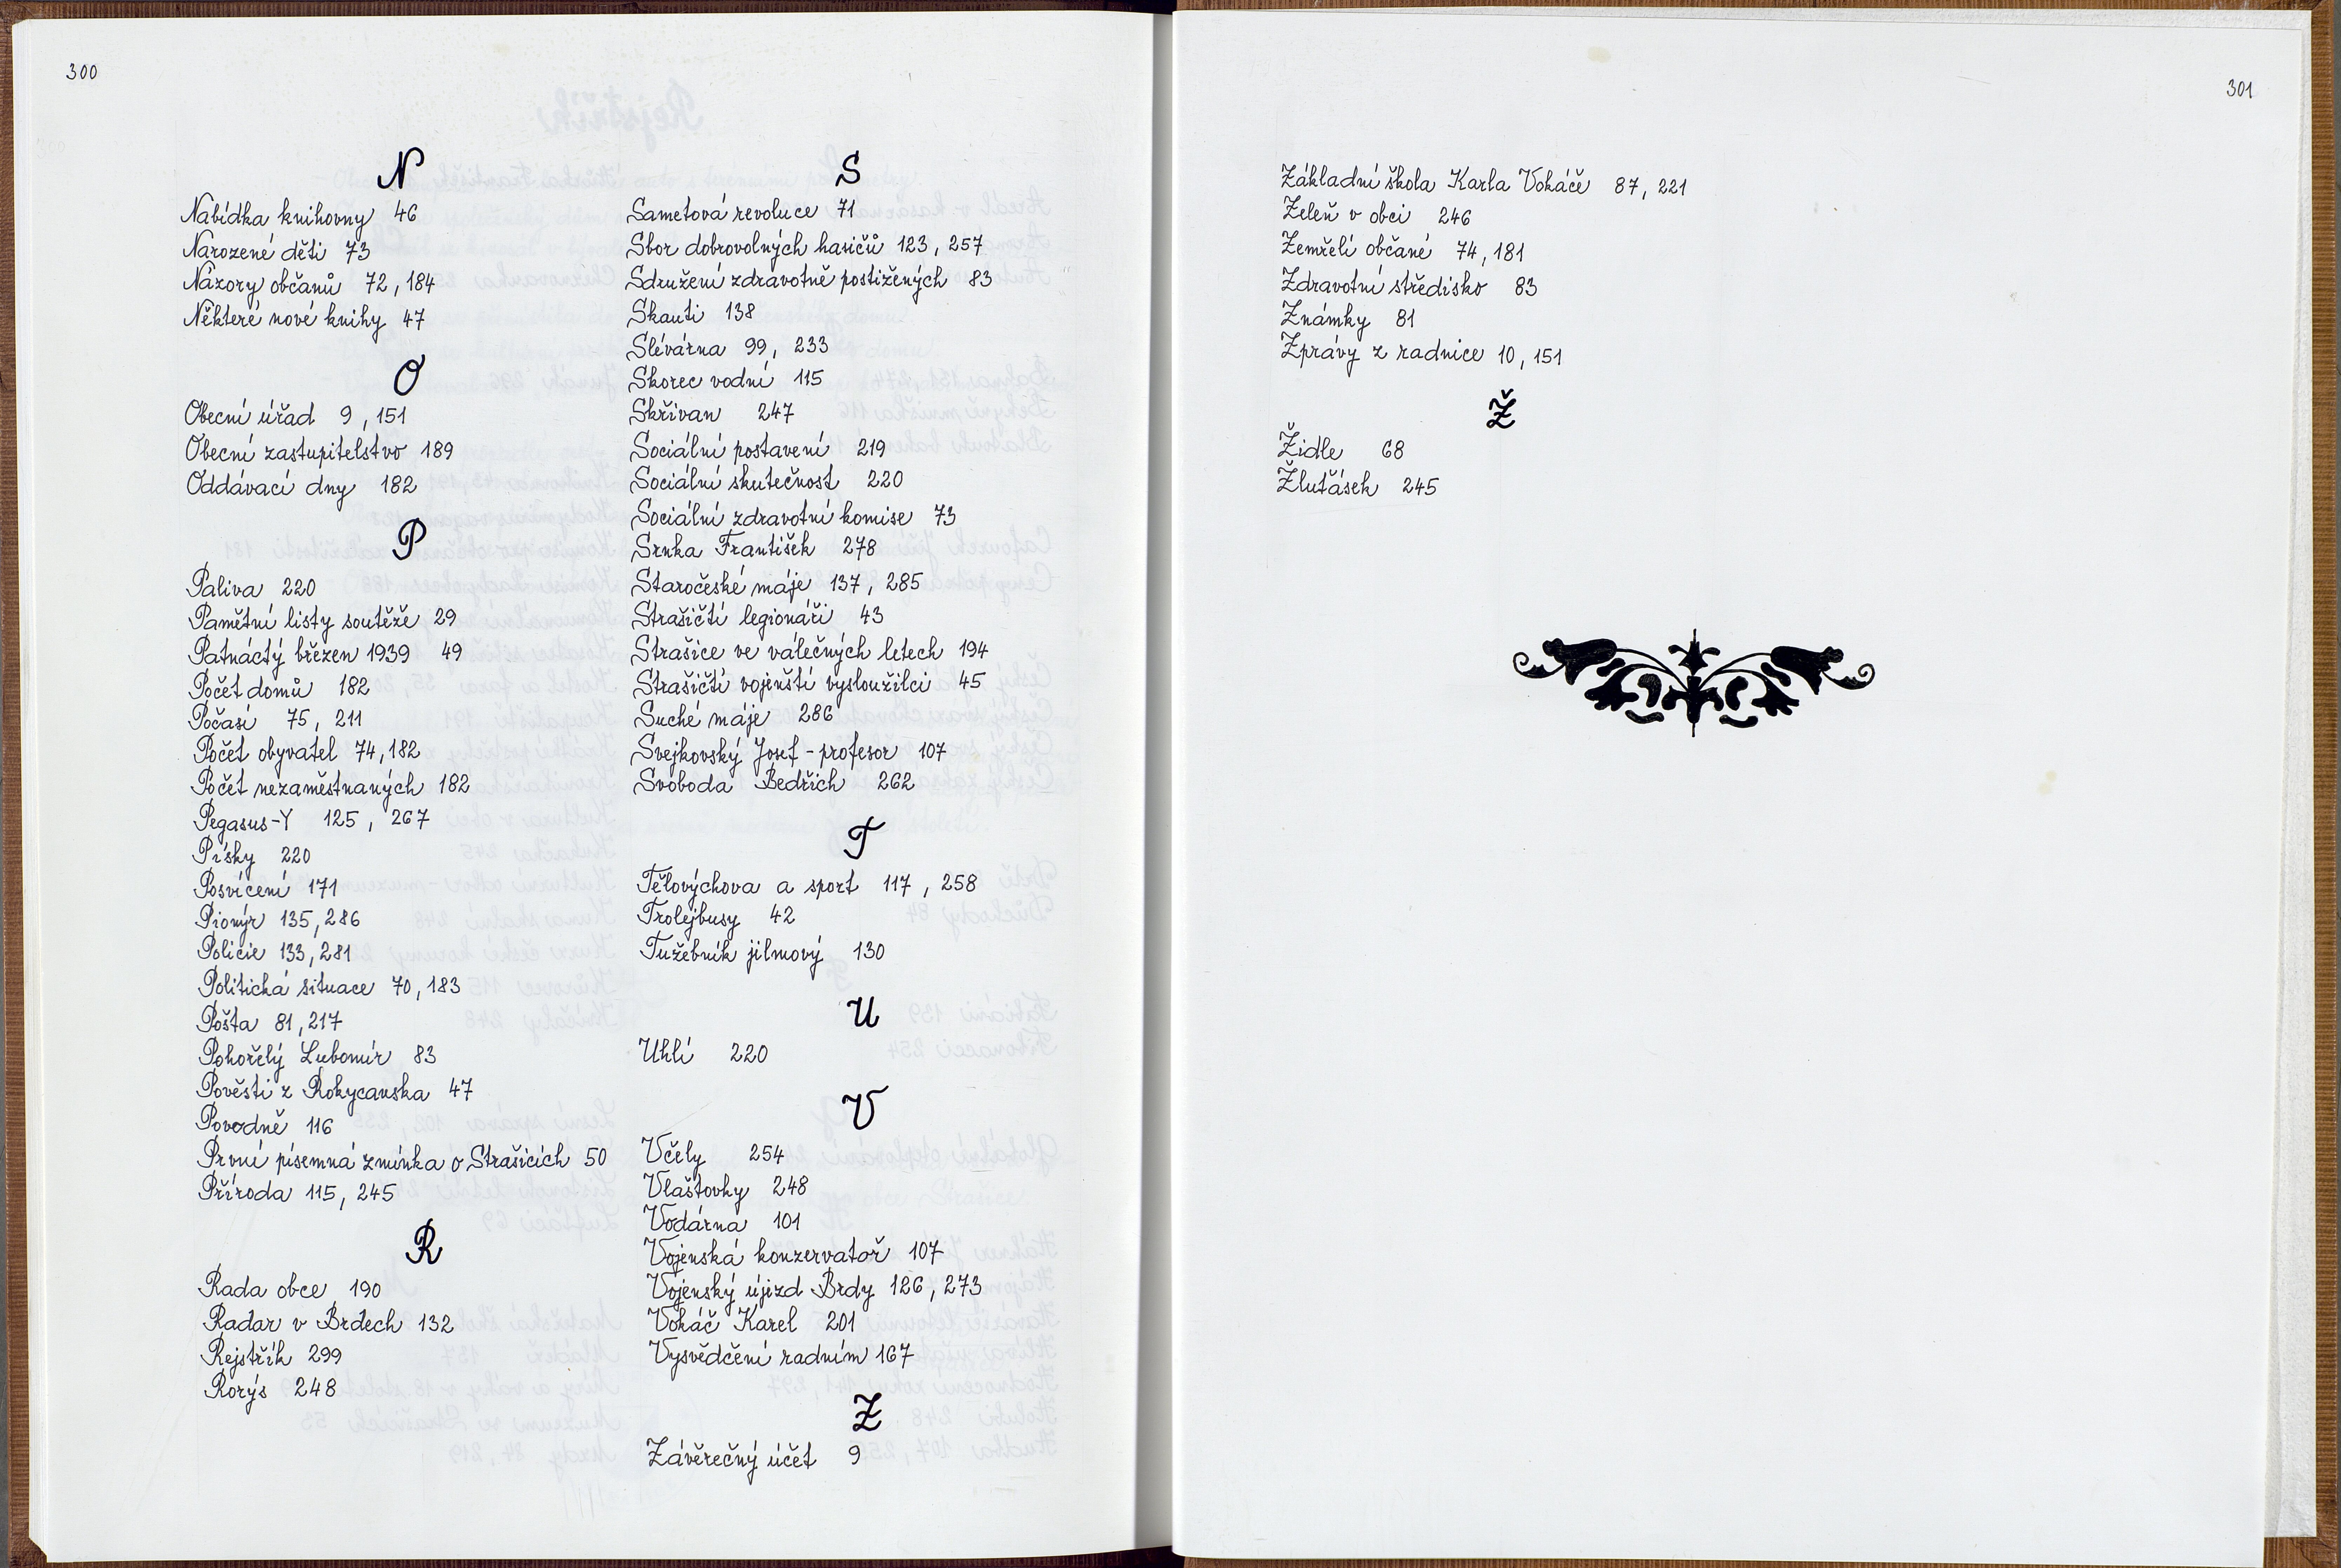 300
N
Nabídka knihovny 46
Narozené děti 73
Názory občanů 72, 184
Některé nové knihy 47
O
Obecní úřad 9, 151
Obecní zastupitelstvo 189
Oddávací dny 182
P
Paliva 220
Pamětní listy soutěže 29
Patnáctý březen 1939 49
Počet domů 182
Počasí 75, 211
Počet obyvatel 74, 182
Počet nezaměstnaných 182
Pegasus-Y 125, 267
Písky 220
Posvícení 171
Pionýr 135, 286
Policie 133, 281
Politická situace 70, 183
Pošta 81, 217
Pohořelý Lubomír 83
Pověsti z Rokycanska 47
Povodně 116
První písemná zmínka o Strašicích 50
Příroda 115, 245
R
Rada obce 190
Radar v Brdech 132
Rejstřík 299
Rorýs 248
S
Sametová revoluce 71
Sbor dobrovolných hasičů 123, 257
Sdružení zdravotně postižených 83
Skauti 138
Slévárna 99, 233
Skorec vodní 115
Skřivan 247
Sociální postavení 219
Sociální skutečnost 220
Sociální zdravotní komise 73
Srnka František 278
Staročeské máje 137, 285
Strašičtí legionáři 43
Strašice ve válečných letech 194
Strašičtí vojenští vysloužilci 45
Suché máje 286
Svejkovský Josef - profesor 107
Svoboda Bedřich 262
T
Tělovýchova a sport 117, 258
Trolejbusy 42
Tužebník jilmový 130
U
Uhlí 220
V
Včely 254
Vlaštovky 248
Vodárna 101
Vojenská konzervatoř 107
Vojenský újezd Brdy 126, 273
Vokáč Karel 201
Vysvědčení radním 167
Z
Závěrečný účet 9
301
Základní škola Karla Vokáče 87, 221
Zeleň v obci 246
Zemřelí občané 74, 181
Zdravotní středisko 83
Známky 81
Zprávy z radnice 10, 151
Ž
Židle 68
Žluťásek 245